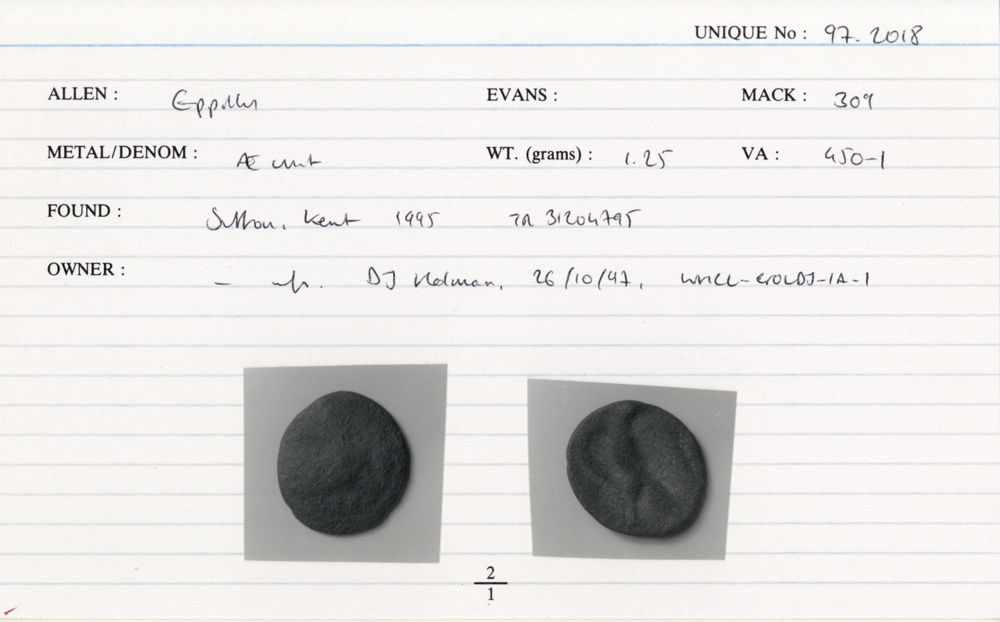 UNIQUE No : 97.2018
ALLEN : Eppillus EVANS : MACK : 309
METAL/DENOM : Æ unit WT. (grams) : 1.25 VA : 450-1
FOUND : Sutton, Kent 1995 TR 31204795
OWNER : — DJ Holman, 26/10/97,
2
1